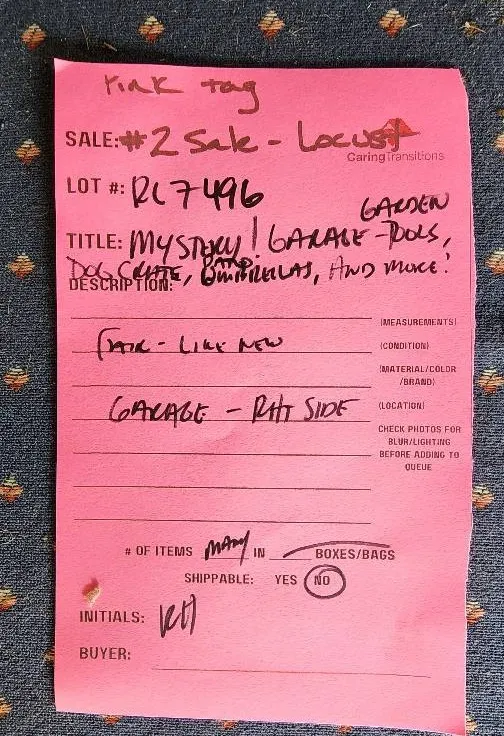 Pink tag
SALE: #2 Sale - Locust
CaringTransitions
LOT #: RL7496
GARDEN
TITLE: MYSTERY! GARAGE TOOLS,
DOG CRATE, UMBRELLAS, AND MORE!
DESCRIPTION:
(MEASUREMENTS)
FAIR - LIKE NEW (CONDITION)
(MATERIAL/COLOR
/BRAND)
GARAGE - RHT SIDE (LOCATION)
CHECK PHOTOS FOR
BLUR/LIGHTING
BEFORE ADDING TO
QUEUE
# OF ITEMS MANY IN BOXES/BAGS
SHIPPABLE: YES NO
INITIALS: RH
BUYER: